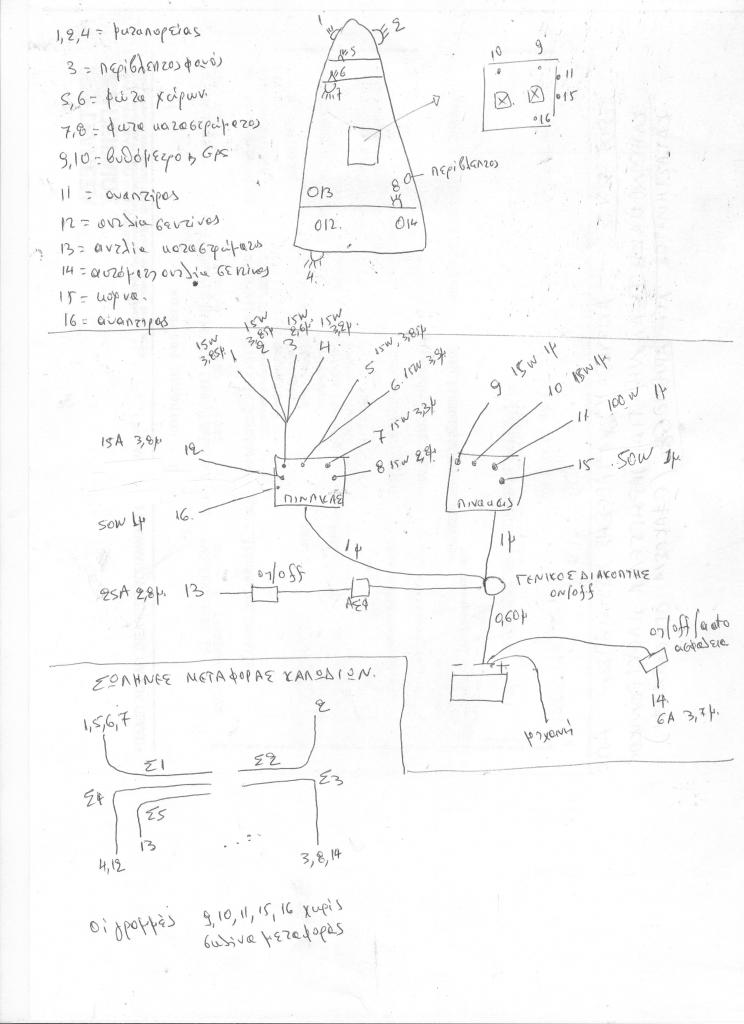 1,2,4 = φωταπορείας
3 = περίβλεπτος φανός
5,6 = φώτα χώρων.
7,8 = φωτα καταστρώματος
9,10 = βυθόμετρο ή GPS
11 = αναπτήρας
12 = αντλία σεντίνας
13 = αντλία καταστρώματος
14 = αυτόματη αντλία σεντίνας
15 = κόρνα.
16 = αναπτηρας
1
2
5
6
7
περίβλεπτος
8
13
12.
14
4.
10
9
11
15
16
15W 3,85μ 1
15W 3,85μ 2
15W 3
15W 4
5 15W, 3,85μ
6. 15W
7 15W 3,3μ
8 15W
15A 3,8μ 12
50W 1μ 16.
ΠΙΝΑΚΑΣ
9 15W 1μ
10 15W 1μ
11 100W 1μ
15 50W 1μ
πινακας
1μ
1μ
25A 2,8μ. 13
on/off
ΑΣΦ
ΓΕΝΙΚΟΣ ΔΙΑΚΟΠΤΗΣ
on/off
0,60μ
- +
on/off/auto
ασφάλεια
14.
6A 3,7μ.
μηχανή
ΣΩΛΗΝΕΣ ΜΕΤΑΦΟΡΑΣ ΚΑΛΩΔΙΩΝ.
1,5,6,7
2
Σ1
Σ2
Σ4
Σ3
Σ5
4,12
13
3,8,14
οι γραμμές 9,10,11,15,16 χωρίς
σωλίνα μεταφοράς